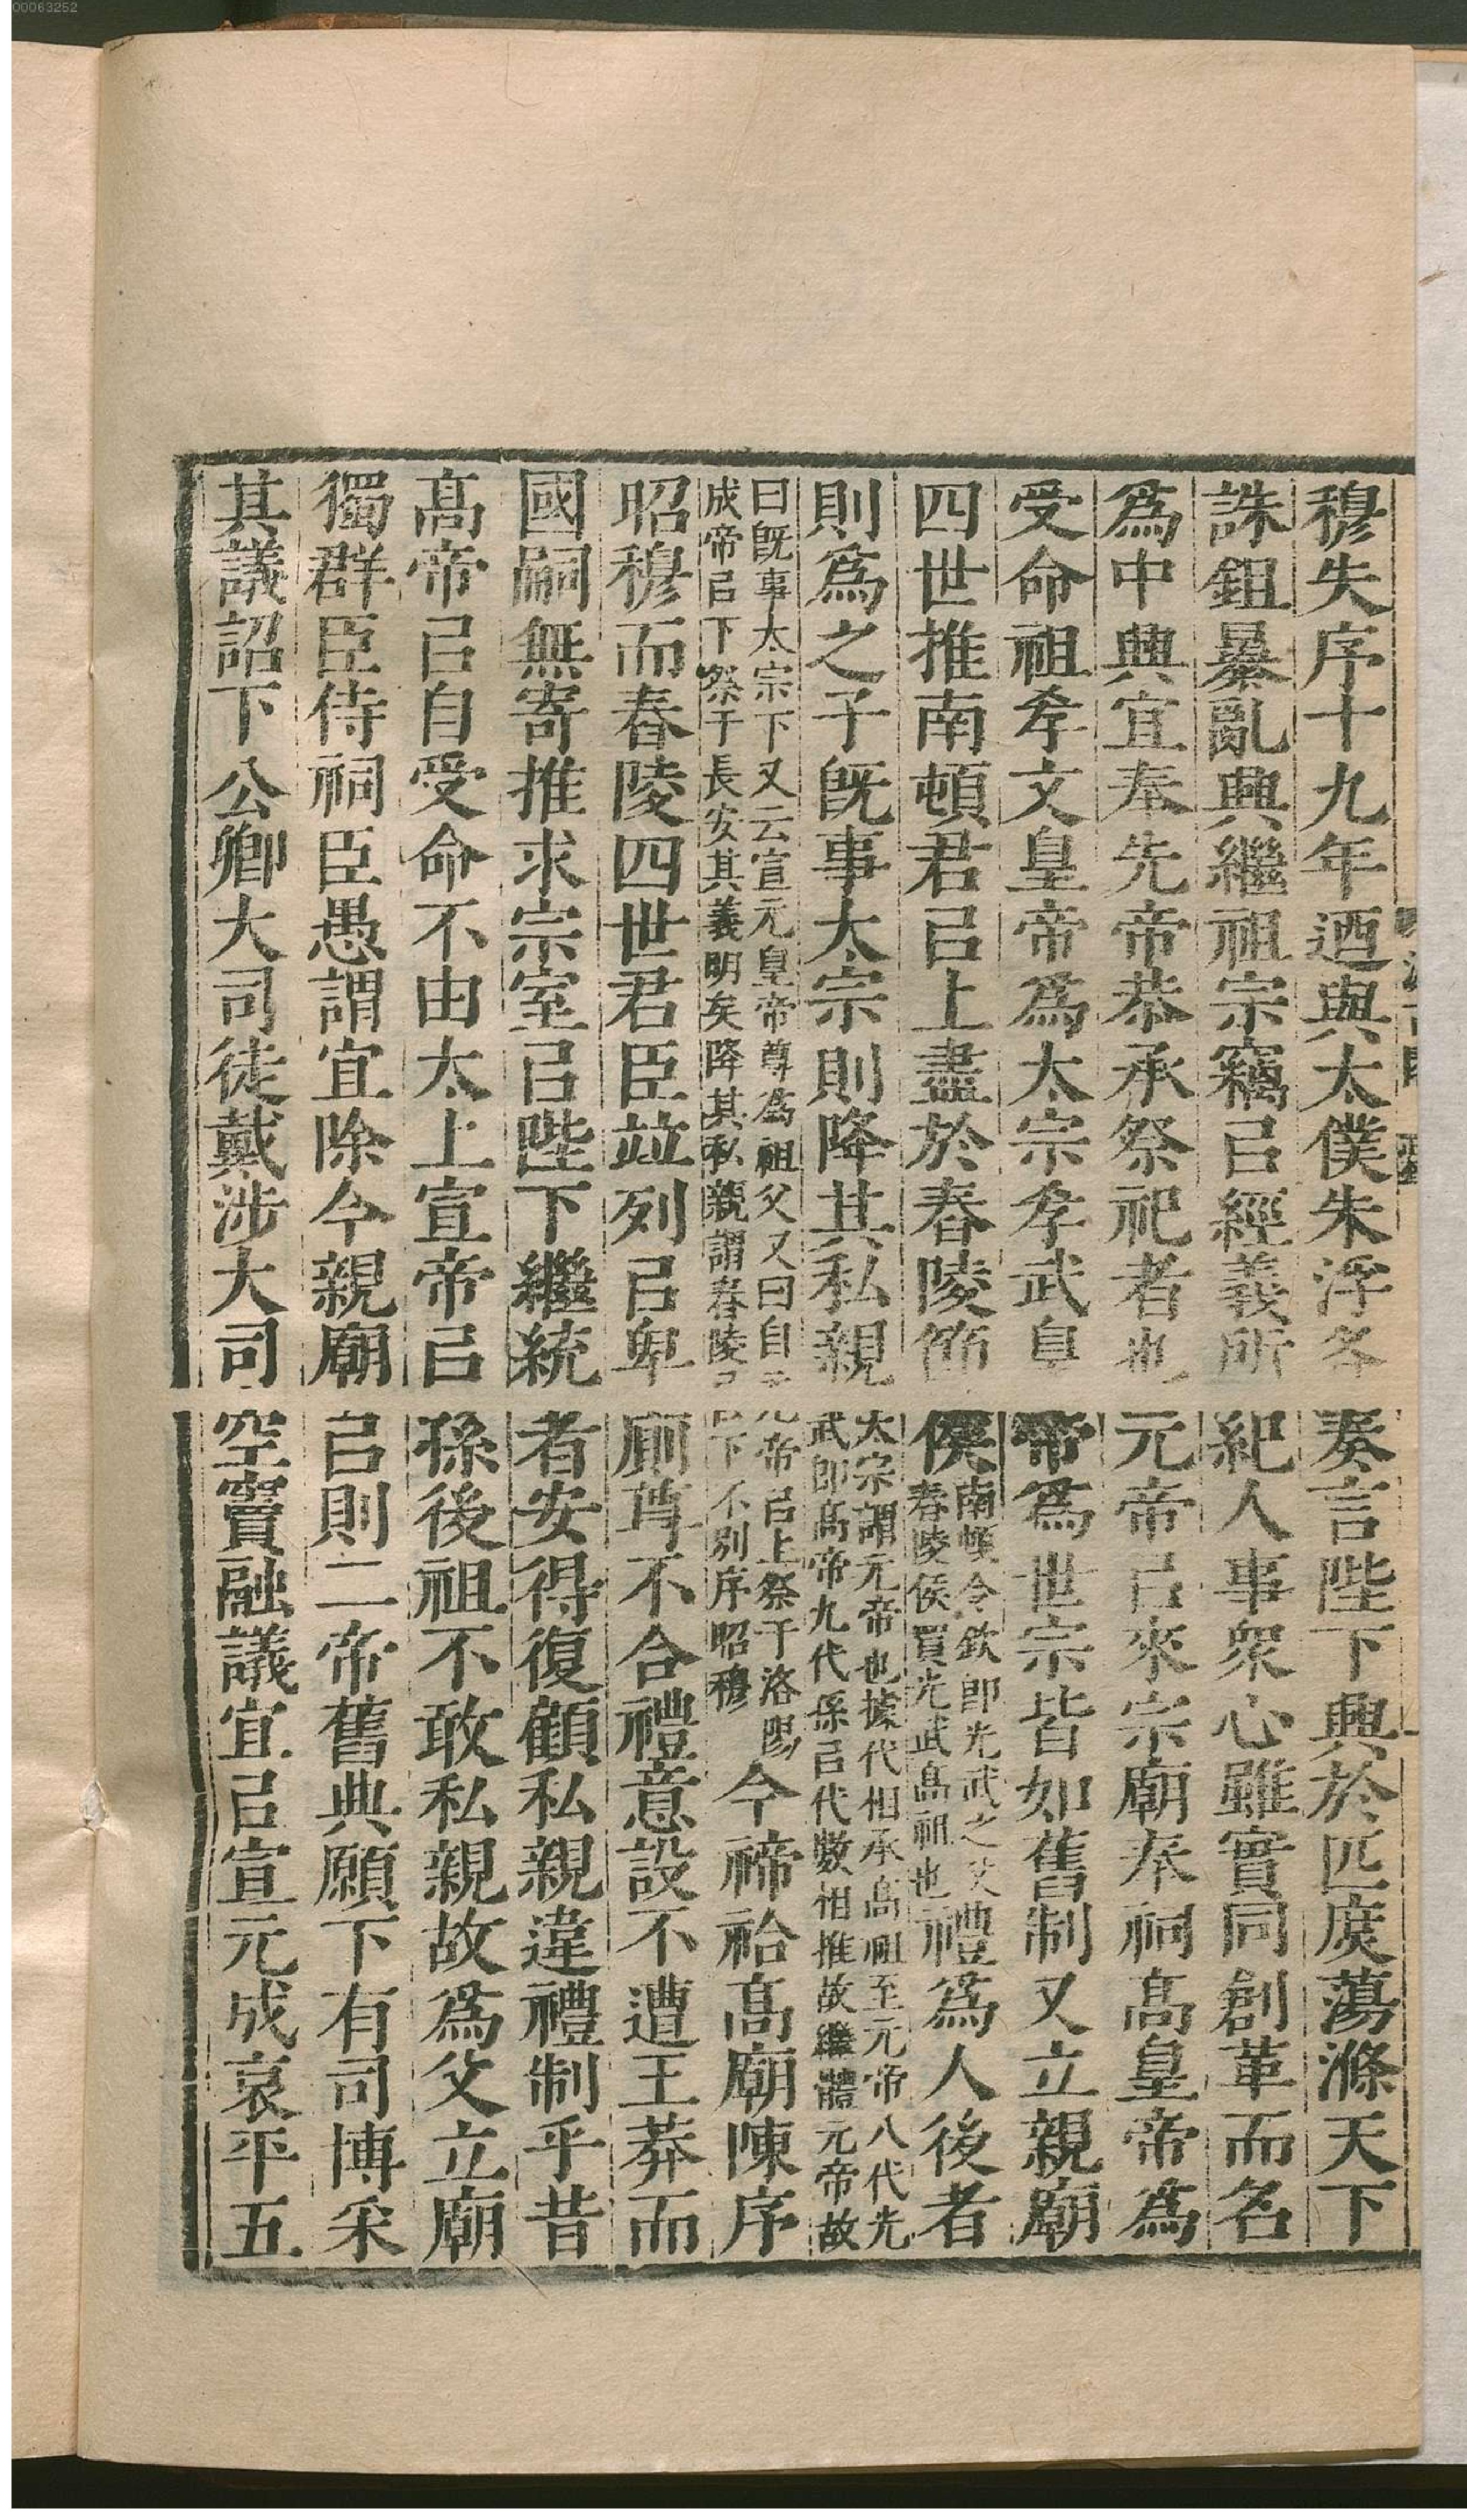 00063252
穆失序十九年迺與太僕朱浮奏言陛下興於匹庻蕩滌天下
誅鉏㬥亂興繼祖宗竊㠯經義所紀人事衆心雖實同創革而名
爲中興宜奉先帝恭承祭祀者也元帝㠯來宗廟奉祠髙皇帝爲
受命祖孝文皇帝爲太宗孝武皇帝爲世宗皆如舊制又立親廟
四世推南頓君㠯上盡於舂陵節侯南頓令欽卽光武之父春陵侯買光武髙祖也禮爲人後者
則爲之子旣事太宗則降其私親太宗謂元帝也據代相承髙祖至元帝八代光武卽髙帝九代孫㠯代數相推故繼體元帝故
曰旣事太宗下又云宣元皇帝尊爲祖父又曰自元帝㠯上祭于洛陽成帝㠯下祭于長安其義明矣降其私親謂舂陵㠯下不別序昭穆今禘祫髙廟陳序
昭穆而舂陵四世君臣竝列㠯卑廁尊不合禮意設不遭王莽而
國嗣無寄推求宗室㠯陛下繼統者安得復顧私親違禮制乎昔
髙帝㠯自受命不由太上宣帝㠯孫後祖不敢私親故爲父立廟
獨群臣侍祠臣愚謂宜除今親廟㠯則二帝舊典願下有司博采
其議詔下公卿大司徒戴涉大司空竇融議宜㠯宣元成哀平五